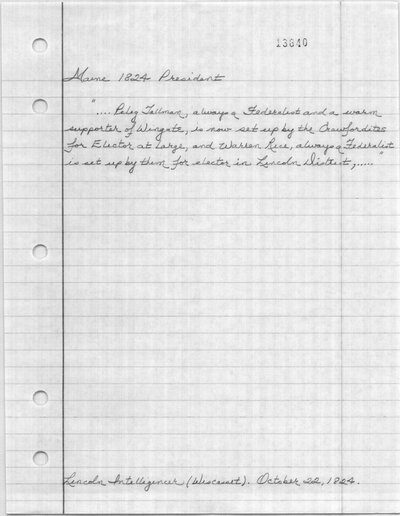 13840
Maine 1824 President
"....Peleg Tallman, always a Federalist and a warm
supporter of Wingate, is now set up by the Crawfordites
for Elector at Large, and Warren Rice, always a Federalist
is set up by them for elector in Lincoln District,....."
Lincoln Intelligencer (Wiscasset). October 22, 1824.